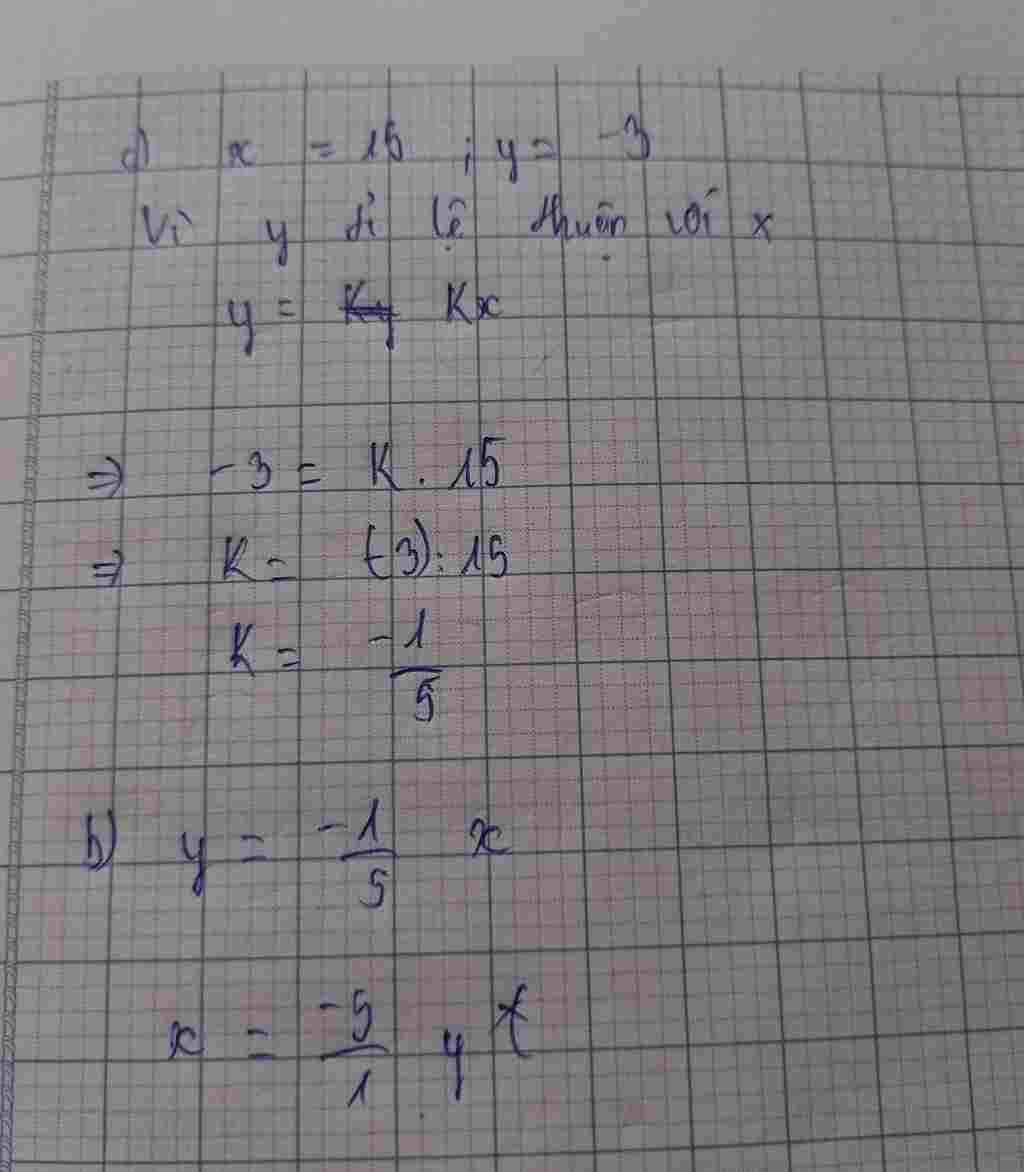 a) x = 15 ; y = -3
Vì y tỉ lệ thuận với x
y = Kx
=> -3 = K . 15
=> K = (-3) : 15
K = -1/5
b) y = -1/5 x
x = -5/1 y